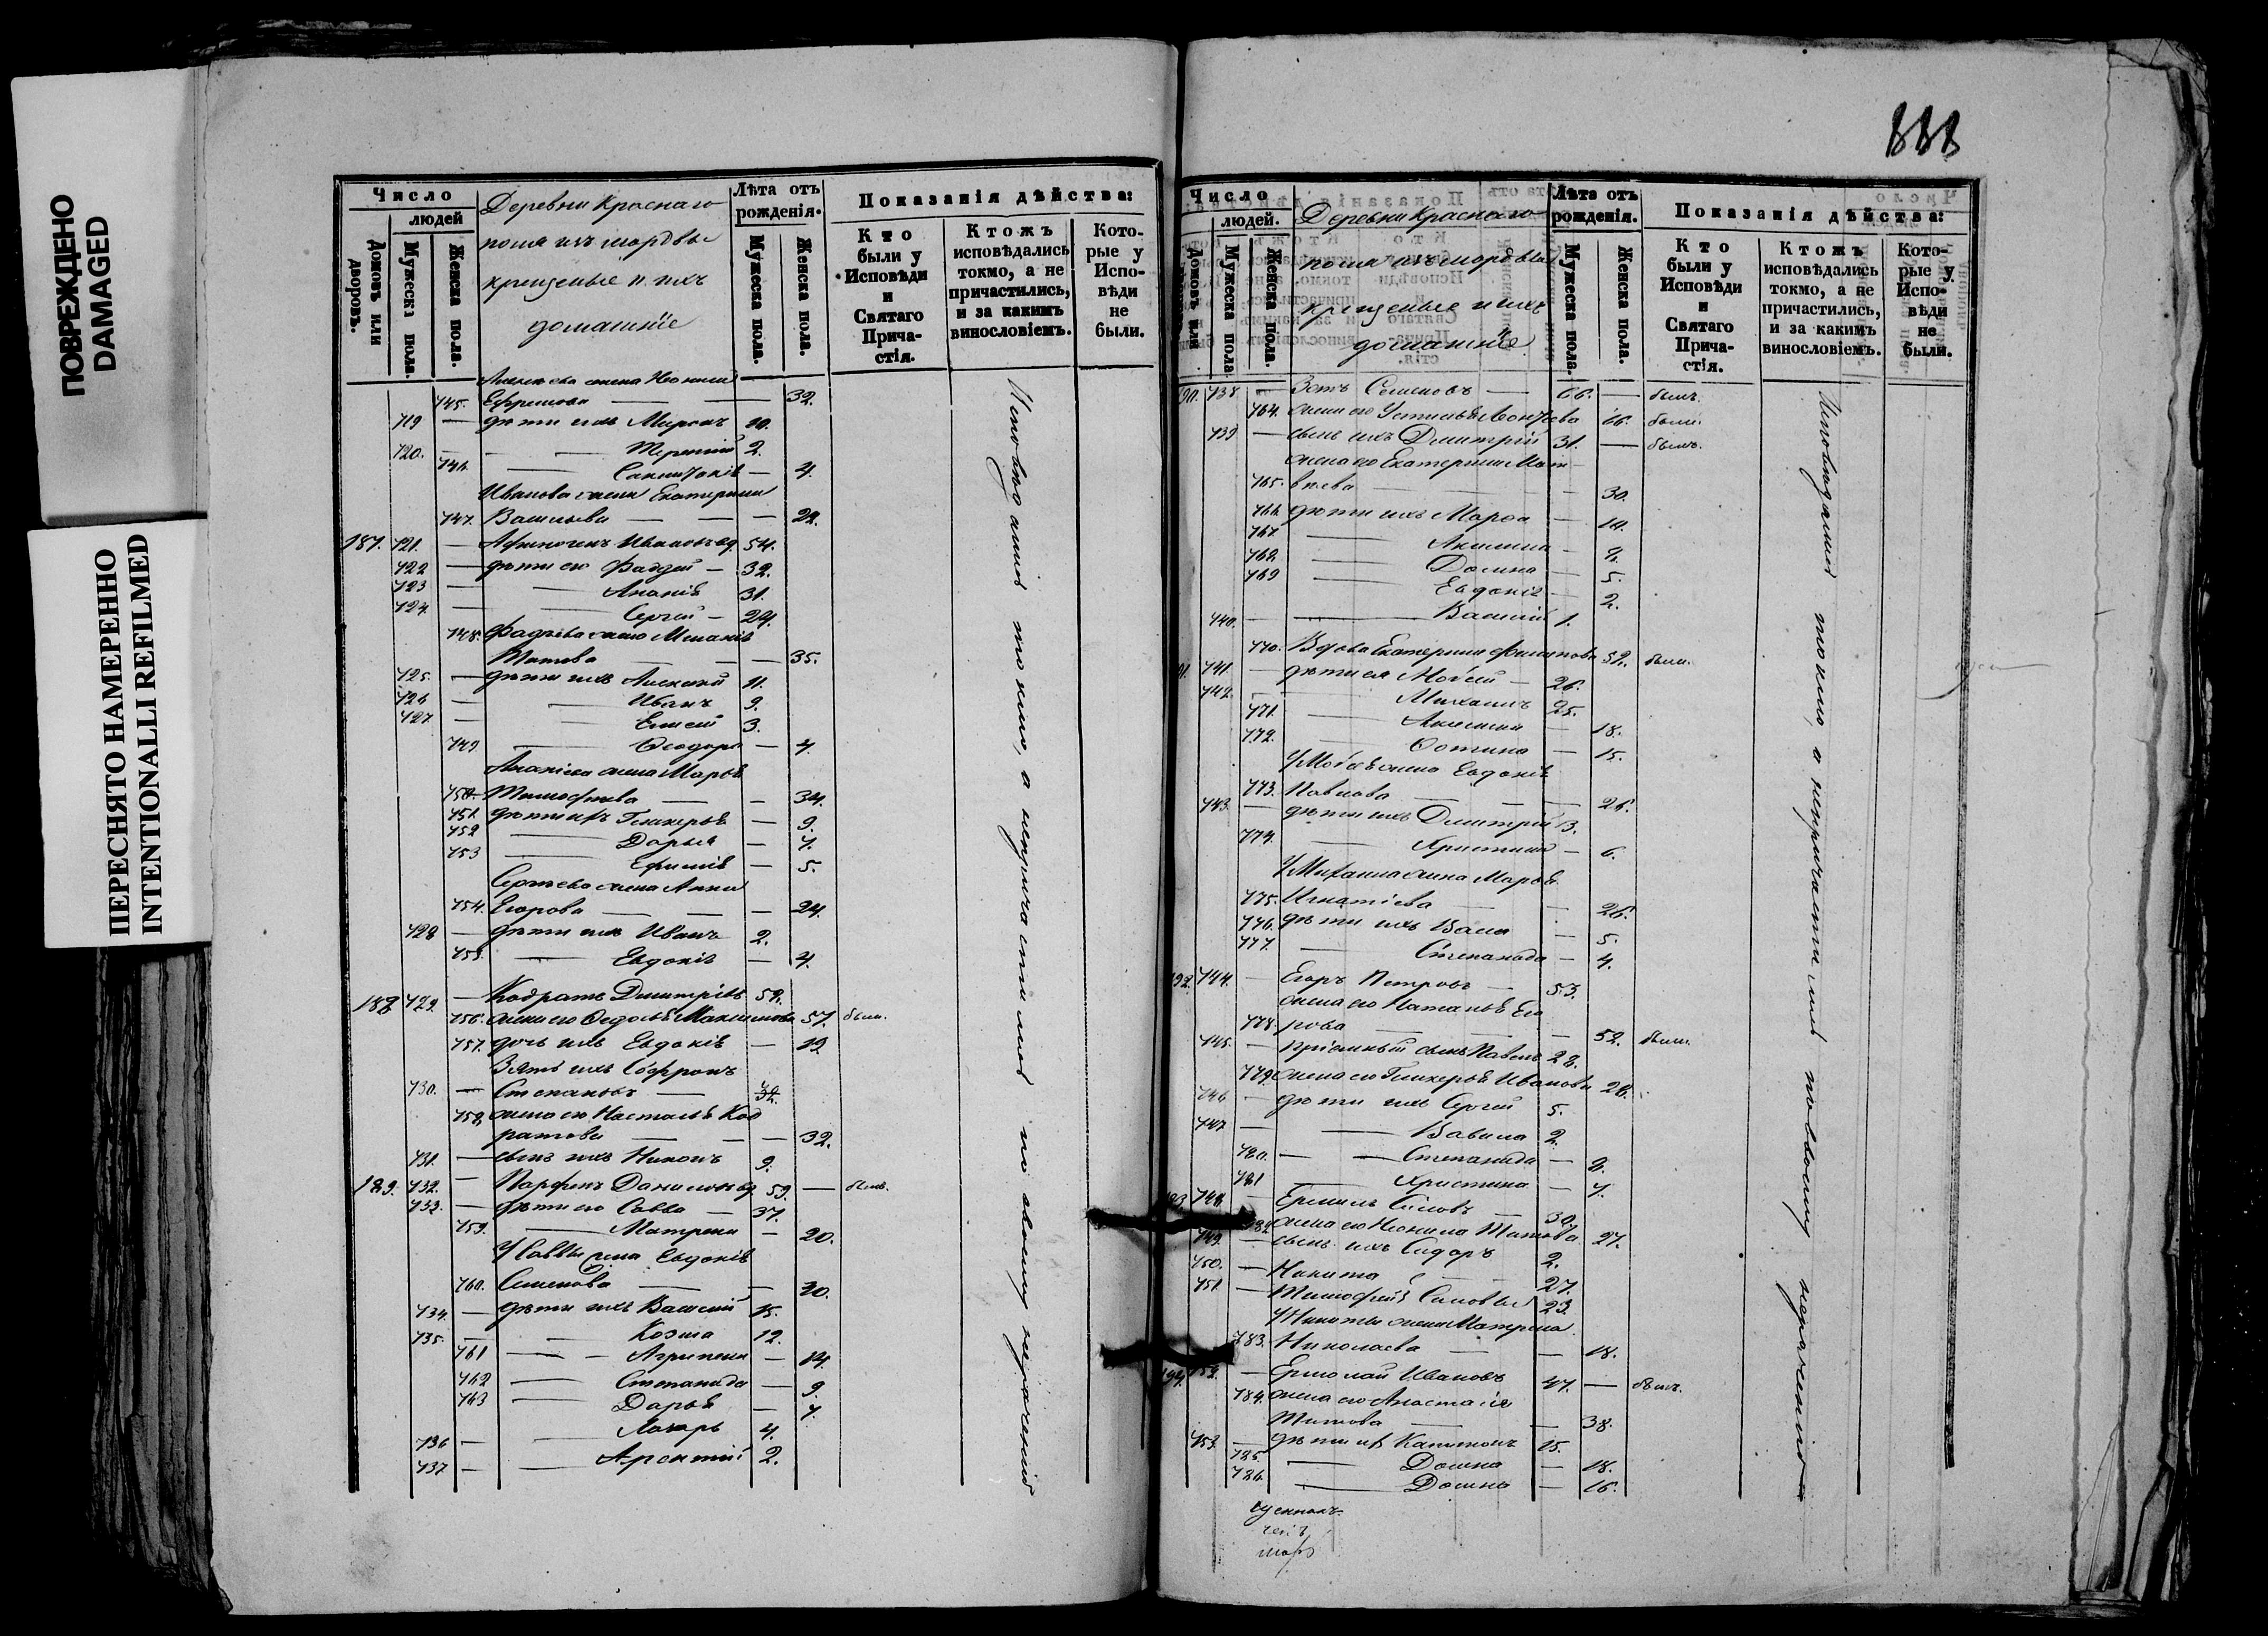 ПОВРЕЖДЕНО
DAMAGED
ПЕРЕСНЯТО НАМЕРЕННО
INTENTIONALLI REFILMED
Число
людей
Домовъ или дворовъ.
Мужеска пола.
Женска пола.
Деревни Краснаго
поля изъ мордвы
крещеные и ихъ
домашніе
Лѣта отъ рожденія.
Мужеска пола.
Женска пола.
Показанія дѣйства:
Кто были у Исповѣди и Святаго Причастія.
Ктожъ исповѣдались токмо, а не причастились, и за какимъ винословіемъ.
Которые у Исповѣди не были.
жена
745. Ефремова 32.
719 дѣти ихъ Миронъ 10.
720. Терентий 2.
746 4.
Иванова жена Екатерина
747. Васильева 22.
187. 721. Афиногенъ Ивановъ вд. 54.
722 дѣти его Фаддей 32.
723 Ананій 31.
724. Сергѣй 24.
748. Фадѣева жена Меланія
Титова 35.
725. дѣти ихъ Алексѣй 11.
726 Иванъ 9.
727 Елисей 3.
749 Ѳеодора 4.
Ананіева жена Марья
750. Тимофѣева 34.
751. дѣти ихъ Гликерья 9.
752 Дарья 7.
753 Ефимія 5.
Сергѣева жена Анна
754. Егорова 24.
728 дѣти ихъ Иванъ 2.
755. Евдокія 4.
188 729. Кодратъ Димитріевъ 59.
756. жена его Ѳедосья Максимова 57. была.
757. дочь ихъ Евдокія 19.
Зять ихъ Софронъ
730. Степановъ 34.
758. жена его Настасья Код
ратова 32.
731. сынъ ихъ Никонъ 9.
189. 732. Парфенъ Даниловъ вд. 59. былъ.
733. дѣти его Савва 37.
759. Матрена 20.
У Саввы жена Евдокія
760. Семенова 30.
734. дѣти ихъ Василий 15.
735. Козма 12.
761 Агрипена 14.
762 Степанида 9.
763 Дарья 7.
736 Лазарь 4.
737 Арсентий 2.
Исповѣдались токмо, а непричастились по своему нерачению
888
Число
людей.
Домовъ или
Мужеска пола.
Женска пола.
Деревни Краснаго
поля изъ мордвы
крещеные и ихъ
домашніе
Лѣта отъ рожденія.
Мужеска пола.
Женска пола.
Показанія дѣйства:
Кто были у Исповѣди и Святаго Причастія.
Ктожъ исповѣдались токмо, а не причастились, и за какимъ винословіемъ.
Которые у Исповѣди не были.
738 Зотъ Семеновъ 66. былъ.
764. жена его Устинья 66. была.
739 сынъ ихъ Димитрій 31. былъ.
жена его Екатерина Мат
765. вѣева 30.
766. дѣти ихъ Марфа 10.
767 Акилина
768 Домна 5.
769 Евдокія 2.
740. Василий 1.
770. Вдова Екатерина Филипова 52. была.
741. дѣти ея Мокей 26.
742. Михаилъ 25.
771. Акилина 18.
772. Фотина 15.
У Мокея жена Евдокія
773. Павлова 26.
743. дѣти ихъ Димитрій 3.
774. Христина 6.
У Михаила жена Марья
775. Игнатіева 26.
776. дѣти ихъ Васса 5.
777. Степанида 4.
192. 744. Егоръ Петровъ 53.
жена его Наталья Его
778. рова 52. была.
745. пріемный сынъ Павелъ 28.
779. жена его Гликерья Иванова 28.
746 дѣти ихъ Сергѣй 5.
747 Вавила 2.
780. Степанида 8.
781 Христина 7.
748 Ермилъ Силовъ 30.
жена его Неонила Титова 27.
749. сынъ ихъ Сидоръ 2.
750. Никита 27.
751. Тимофей Силовы 23.
У Никиты жена Матрена
783. Николаева 18.
194. 752. Ермолай Ивановъ 47. былъ.
784. жена его Анастасія
Титова 38.
753. дѣти ихъ Капитонъ 15.
785. Домна 18.
786. Домна 16.
Исповѣдались токмо, а непричастились по своему нерачению